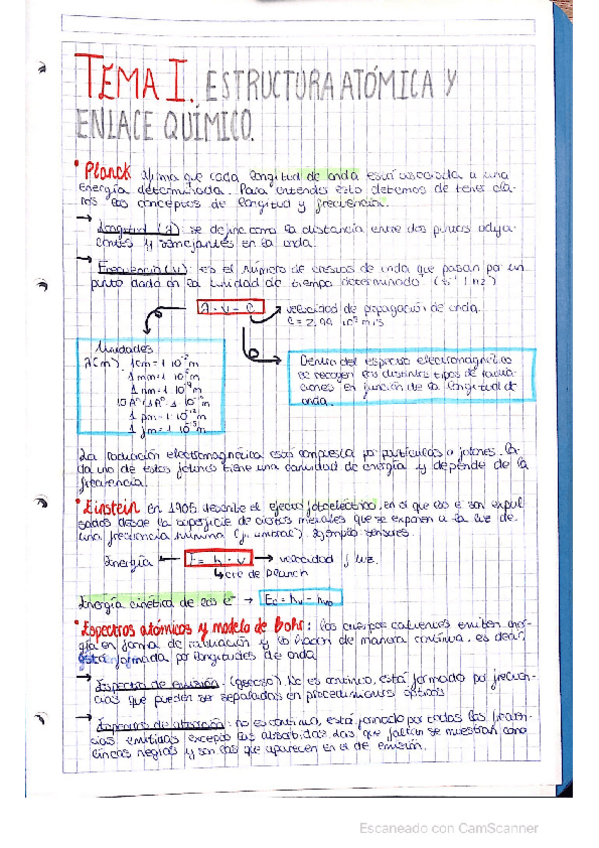 TEMA I. ESTRUCTURA ATÓMICA Y
ENLACE QUÍMICO.
• Planck afirma que cada longitud de onda está asociada a una
energía determinada. Para entender esto debemos de tener cla-
ros los conceptos de longitud y frecuencia.
→ Longitud (λ): se define como la distancia entre dos puntos adya-
centes y semejantes en la onda.
→ Frecuencia (ν): es el número de crestas de onda que pasan por un
punto dado en la unidad de tiempo determinado. (s⁻¹ | Hz)
λ · ν = C → velocidad de propagación de onda.
Unidades
λ(m)
Dentro del espectro electromagnético
se recogen los distintos tipos de radia-
ciones en función de la longitud de
onda.
La radiación electromagnética está compuesta por partículas o fotones. Ca-
da uno de estos fotones tiene una cantidad de energía y depende de la
frecuencia.
• Einstein en 1905 describe el efecto fotoeléctrico, en el que los e⁻ son expul-
sados desde la superficie de ciertos metales que se exponen a la luz de
una frecuencia mínima (f. umbral). Ejemplo sensores.
Energía ← E = h · ν → velocidad luz.
↳ cte de Planck
Energía cinética de los e⁻ → Ec = hν - hν₀
• Espectros atómicos y modelo de Bohr: los cuerpos calientes emiten ener-
gía en forma de radiación y lo hacen de manera continua, es decir,
está formada por longitudes de onda
→ Espectro de emisión: (gaseoso) No es continuo, está formado por frecuen-
cias que pueden ser separadas en procedimientos ópticos
→ Espectro de absorción: no es continuo, está formado por todas las frecuen-
cias emitidas excepto las absorbidas, las que faltan se muestran como
líneas negras y son las que aparecen en el de emisión.
Escaneado con CamScanner